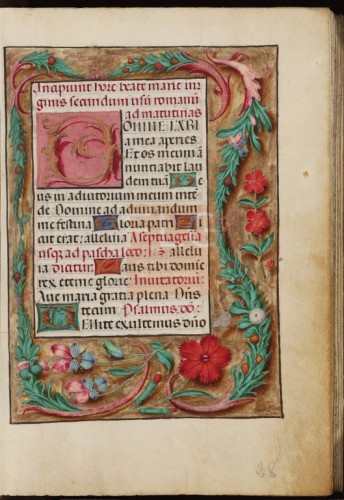 Incipiunt hore beate marie vir
ginis secundum usū romanū
ad matutinas
OMINE LABI
a mea aperies
Et os meum a
nuntiabit lau
dem tuā De
us in adiutorium meum inten
de Domine ad adiuvandum
me festina Gloria patri
cut erat: alleluia A septuagesima
usq; ad pascha loco
dicitur. Laus tibi domine
rex eterne glorie: Invitatoriū
Ave maria gratia plena Dn̄s
tecum Psalmus.
Enite exultemus dn̄o
38